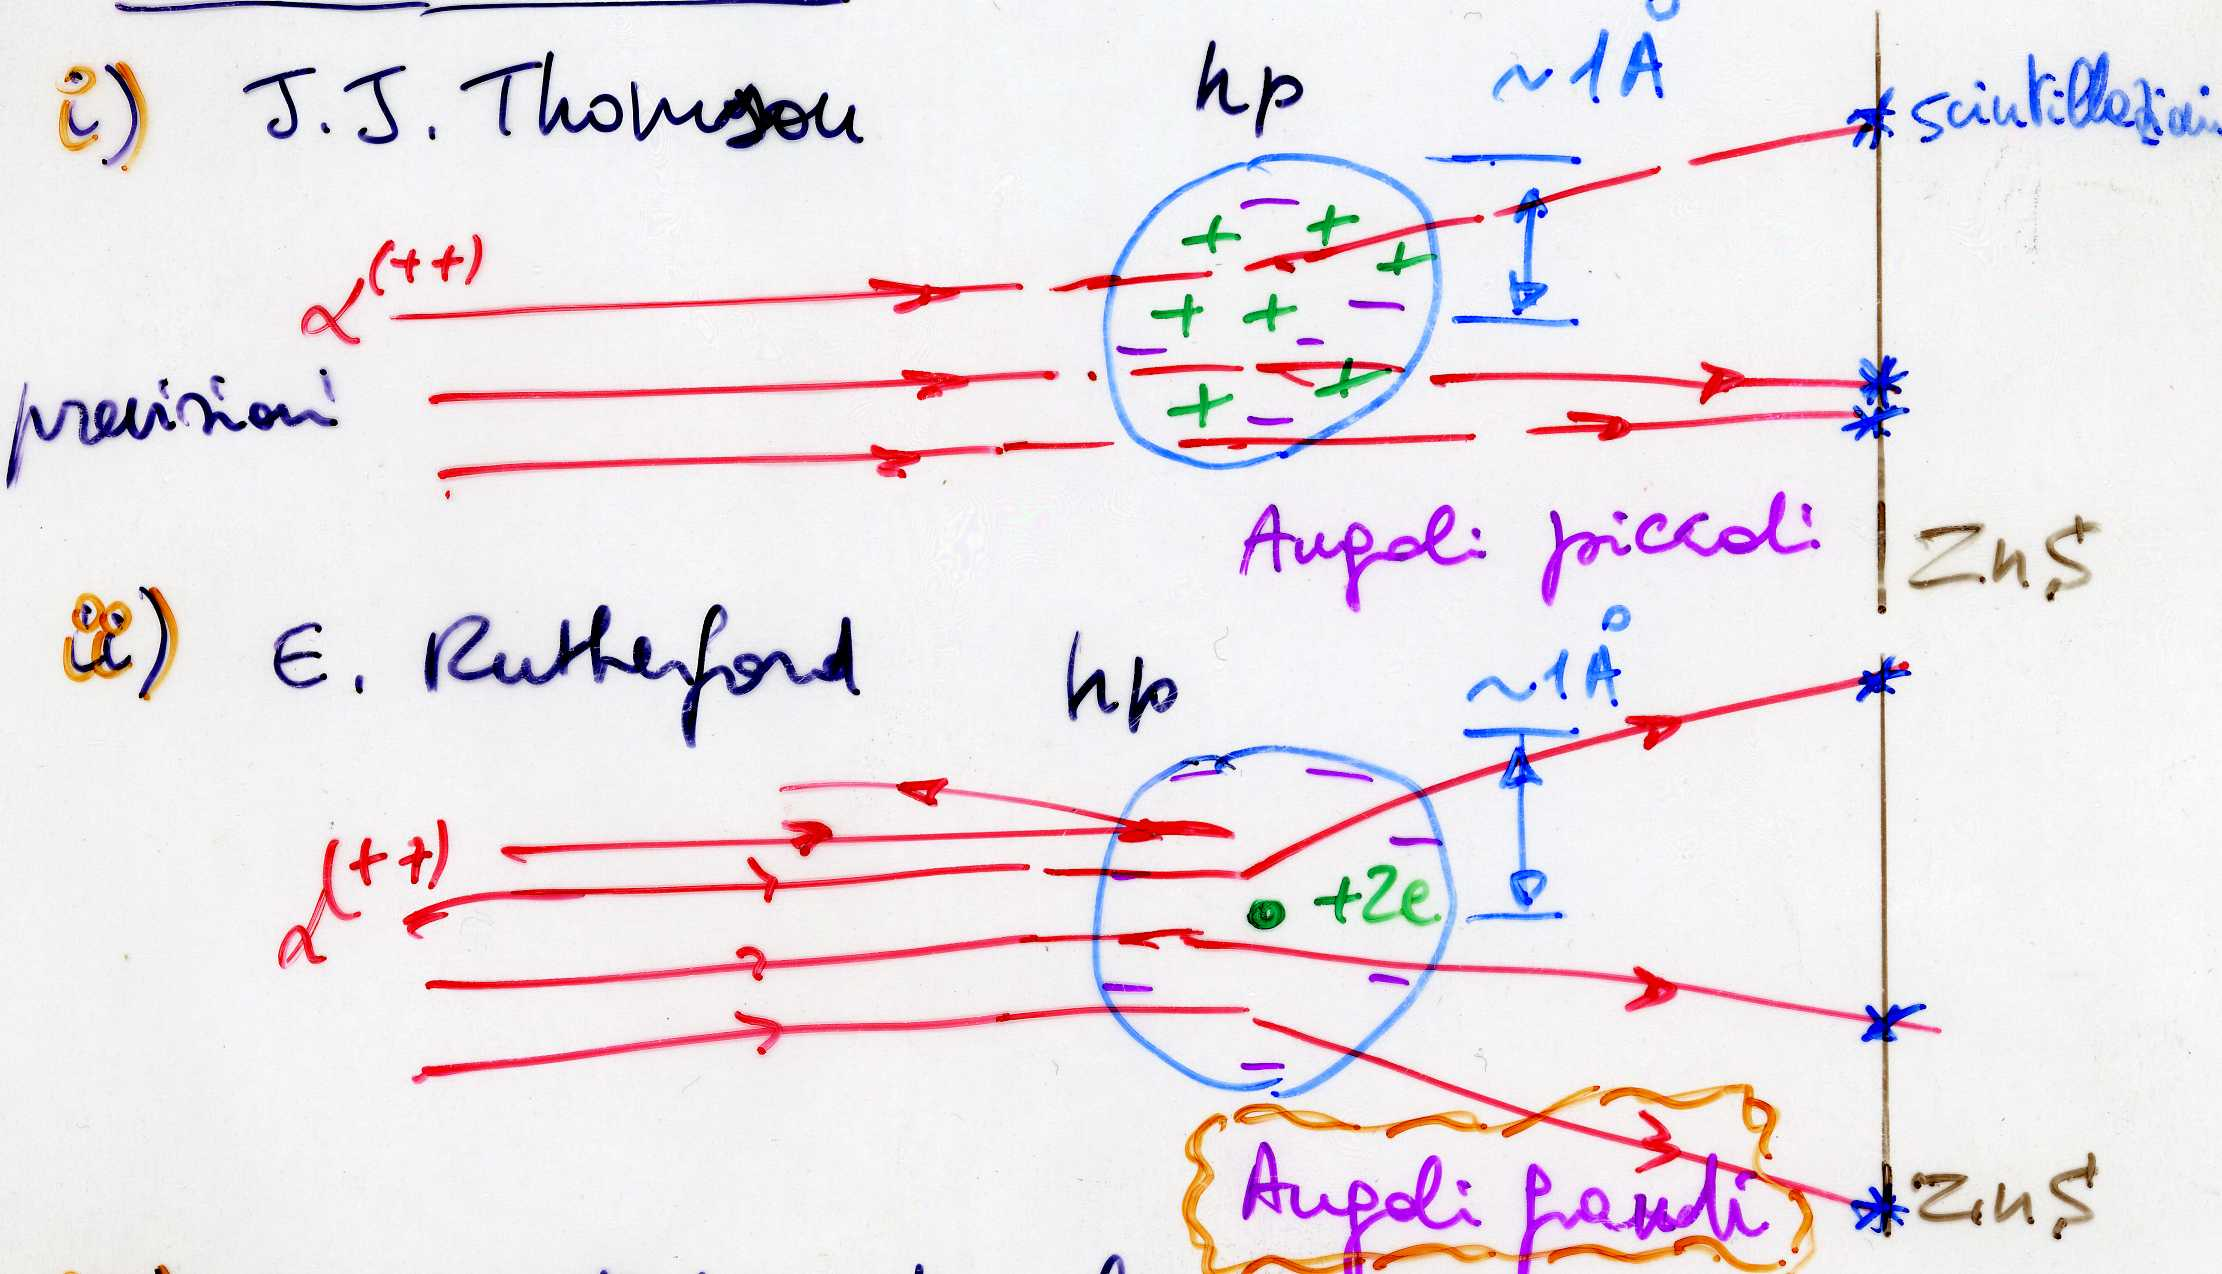 i) J.J. Thomson hp ~1Å
scintillazioni
α(++)
+ + + + + + +
- - - - -
previsioni
Angoli piccoli
ZnS
ii) E. Rutherford hp ~1Å
α(++)
+Ze
- - - - - - -
Angoli grandi
ZnS